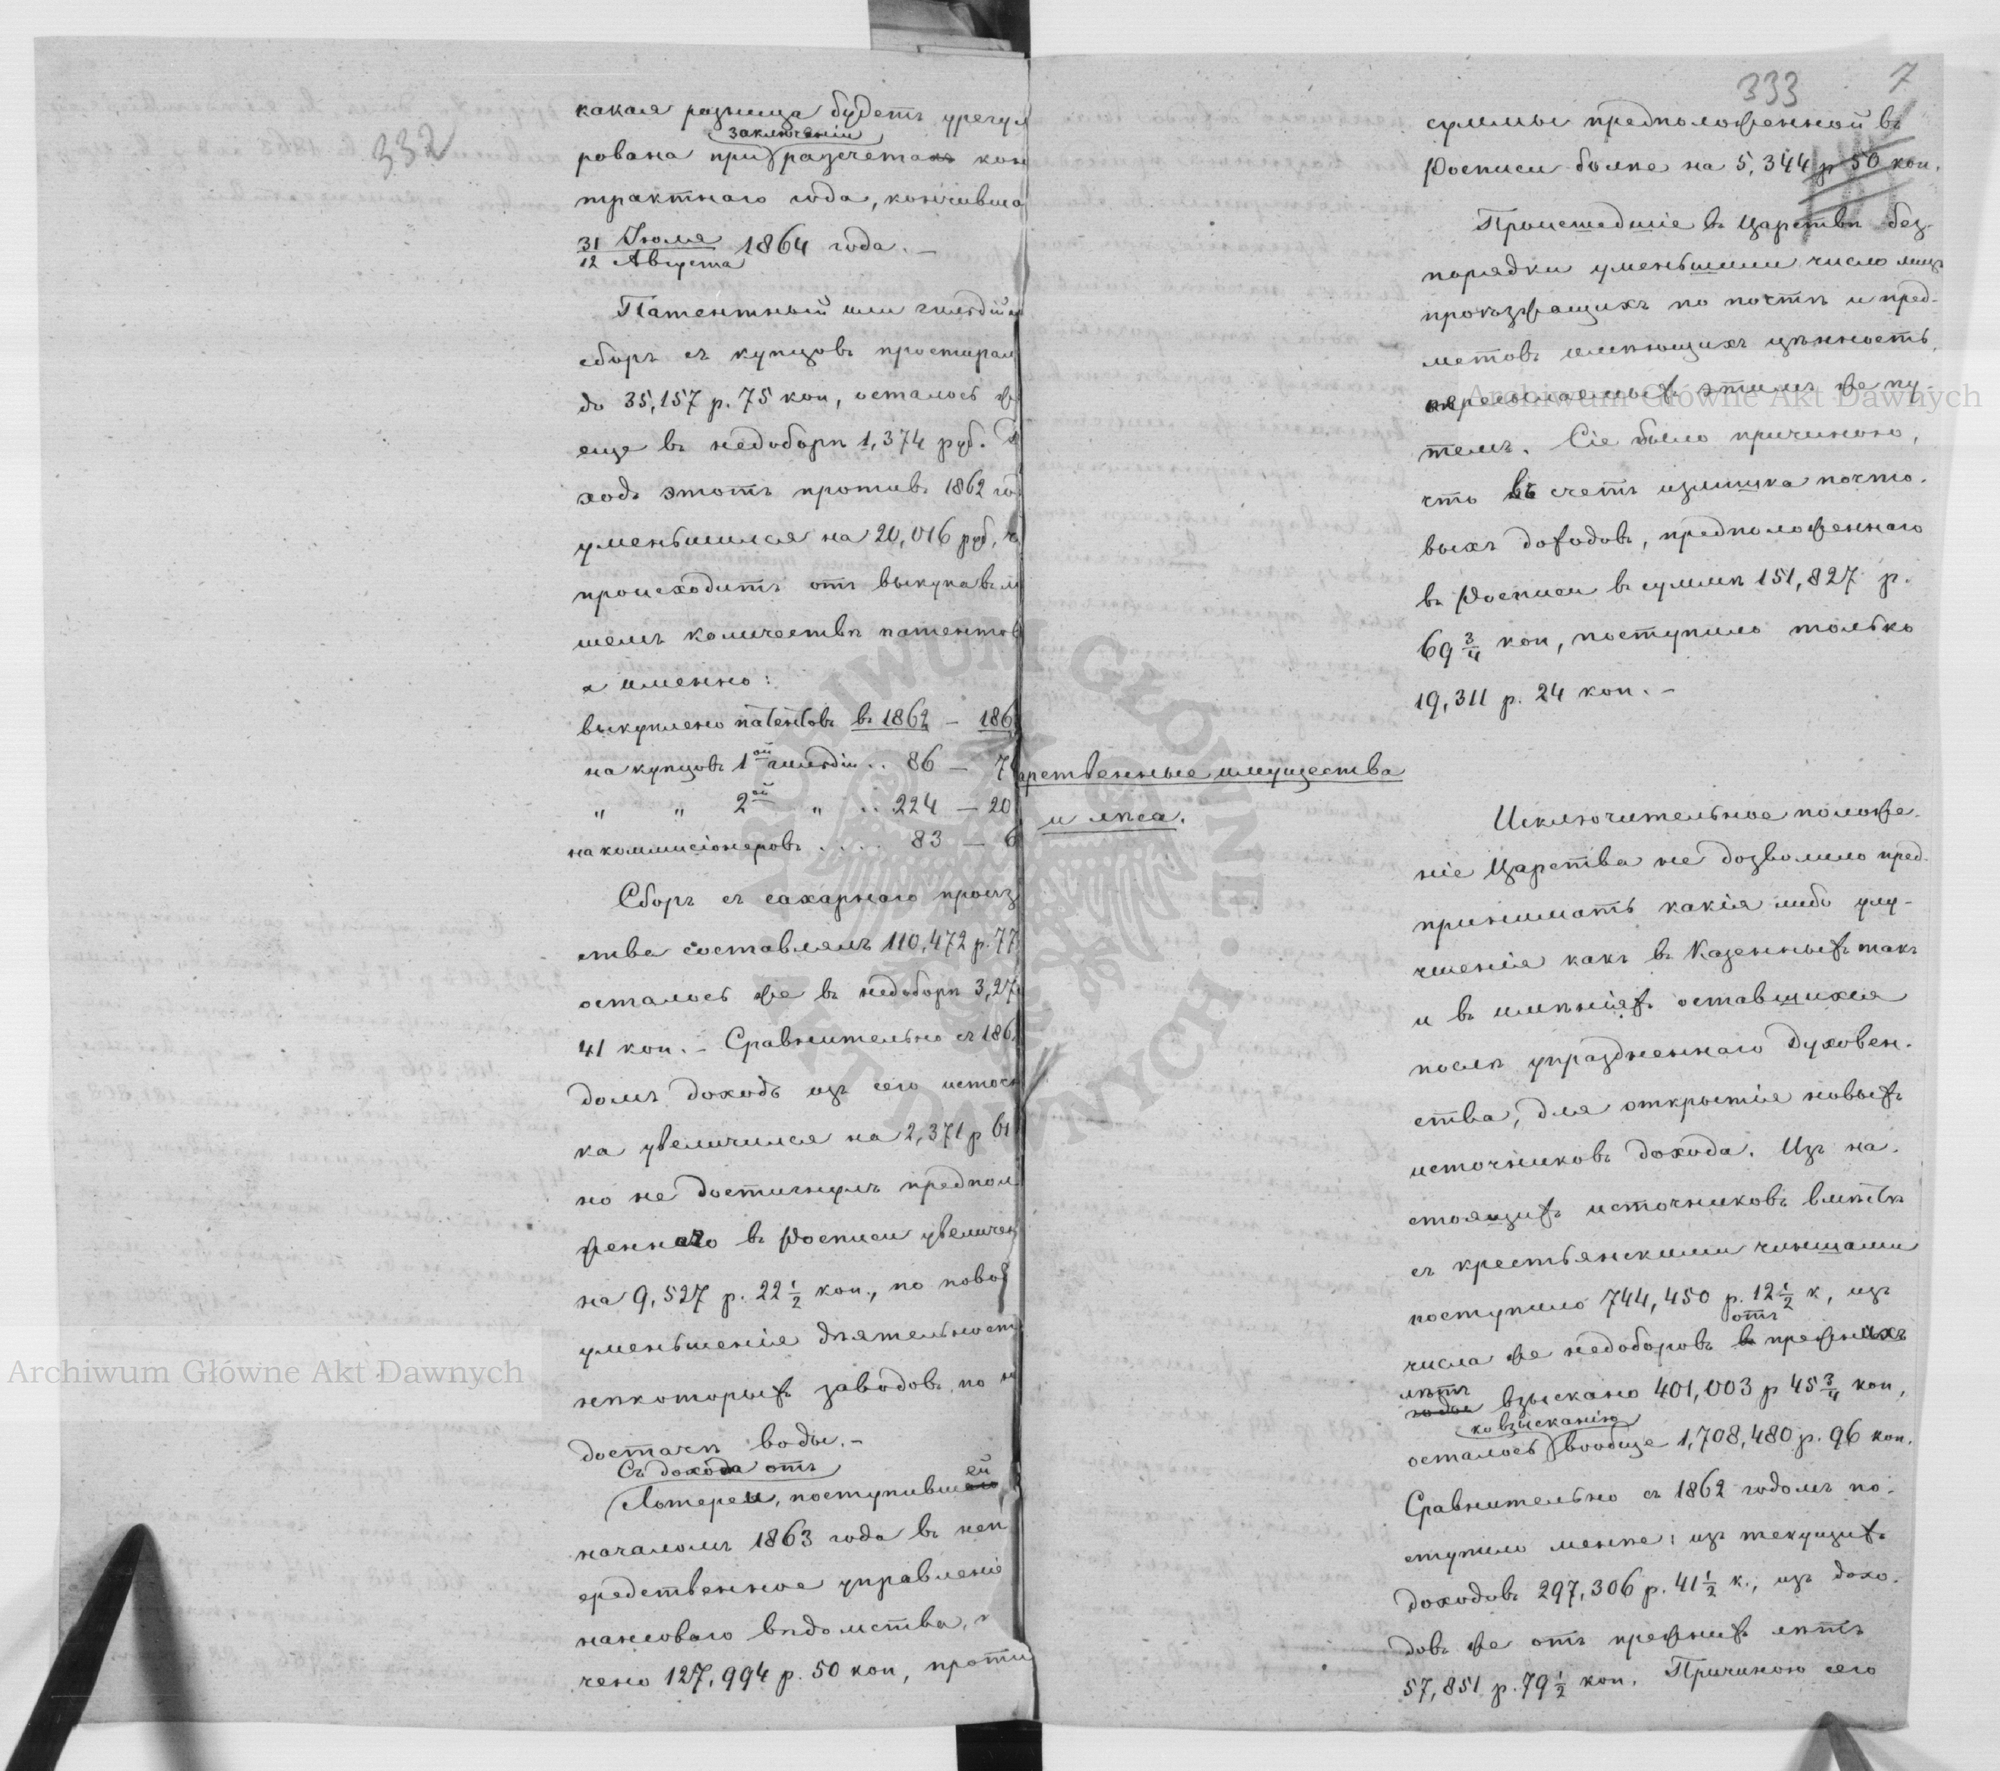 332
какая разница будетъ урегул
заключеніи
рована при разсчетахъ кон
трактнаго года, кончивша
31 Іюля
12 Августа 1864 года. —
Патентный или гильдій
сборъ съ купцовъ простирал
до 35,157 р. 75 коп, осталось же
еще въ недоборѣ 1,374 руб.
ходъ этотъ противъ 1862 го
уменьшился на 20,016 руб,
происходитъ отъ выкупа въ м
шемъ количествѣ патентов
а именно:
выкуплено патентовъ въ 1862 — 186
на купцовъ 1ой гильдіи .. 86 — 7
" " 2ой " .. 224 — 20
на коммисіонеровъ .... 83 — 6
Сборъ съ сахарнаго произ
ства составлялъ 110,472 р. 77
осталось же въ недоборѣ 3,27
41 коп. — Сравнительно съ 186
домъ доходъ изъ сего источ
ка увеличился на 2,371 р 61
но не достигнулъ предпол
женнаго въ Росписи увеличен
на 9,527 р. 22 1/2 коп., по повод
уменьшенія дѣятельност
нѣкоторыхъ заводовъ, по н
достачѣ воды. —
Съ дохода отъ
Лотереи, поступившей
началомъ 1863 года въ неп
средственное управленіе
нансоваго вѣдомства,
чено 127,994 р. 50 коп, проти
333 7
суммы предположенной въ
Росписи болѣе на 5,344 р 50 коп.
Происшедшіе въ Царствѣ без-
порядки уменьшили число лицъ
проѣзжающихъ по почтѣ и пред-
метовъ имѣющихъ цѣнность,
пересылаемыхъ этимъ же пу-
темъ. Сіе было причиною,
что въ счетъ излишка почто-
выхъ доходовъ, предположеннаго
въ Росписи въ суммѣ 151,827 р.
69 3/4 коп, поступило только
19,311 р. 24 коп. —
арственные имущества
и лѣса.
Исключительное положе-
ніе Царства не дозволило пред-
принимать какія либо улу-
чшенія какъ въ Казенныхъ такъ
и въ имѣніяхъ оставшихся
послѣ упраздненнаго Духовен-
ства, для открытія новыхъ
источниковъ дохода. Изъ на-
стоящихъ источниковъ вмѣстѣ
съ крестьянскими чиншами
поступило 744,450 р. 12 1/2 к, изъ
отъ
числа же недоборовъ въ прежнихъ
лѣтъ
годы взыскано 401,003 р 45 3/4 коп,
ко взысканію
осталось вообще 1,708,480 р. 96 коп.
Сравнительно съ 1862 годомъ по-
ступило менѣе: изъ текущихъ
доходовъ 297,306 р. 41 1/2 к., изъ дохо-
довъ же отъ прежнихъ лѣтъ
57,851 р. 79 1/2 коп. Причиною сего
Archiwum Główne Akt Dawnych
Archiwum Główne Akt Dawnych
ARCHIWUM GŁÓWNE · AKT DAWNYCH ·